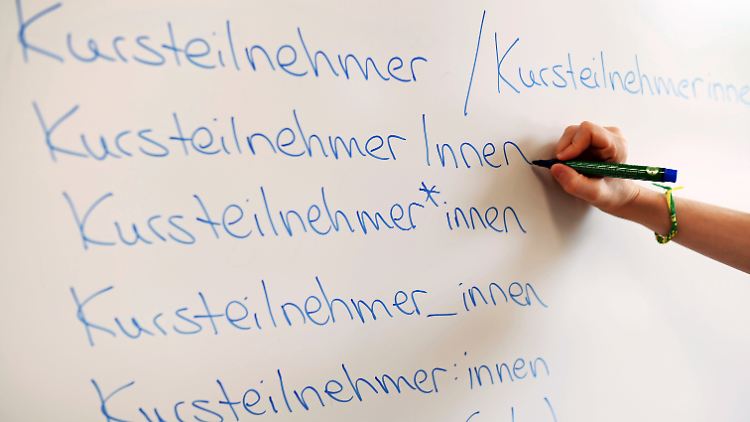 Kursteilnehmer / Kursteilnehmerinnen
KursteilnehmerInnen
Kursteilnehmer*innen
Kursteilnehmer_innen
Kursteilnehmer:innen